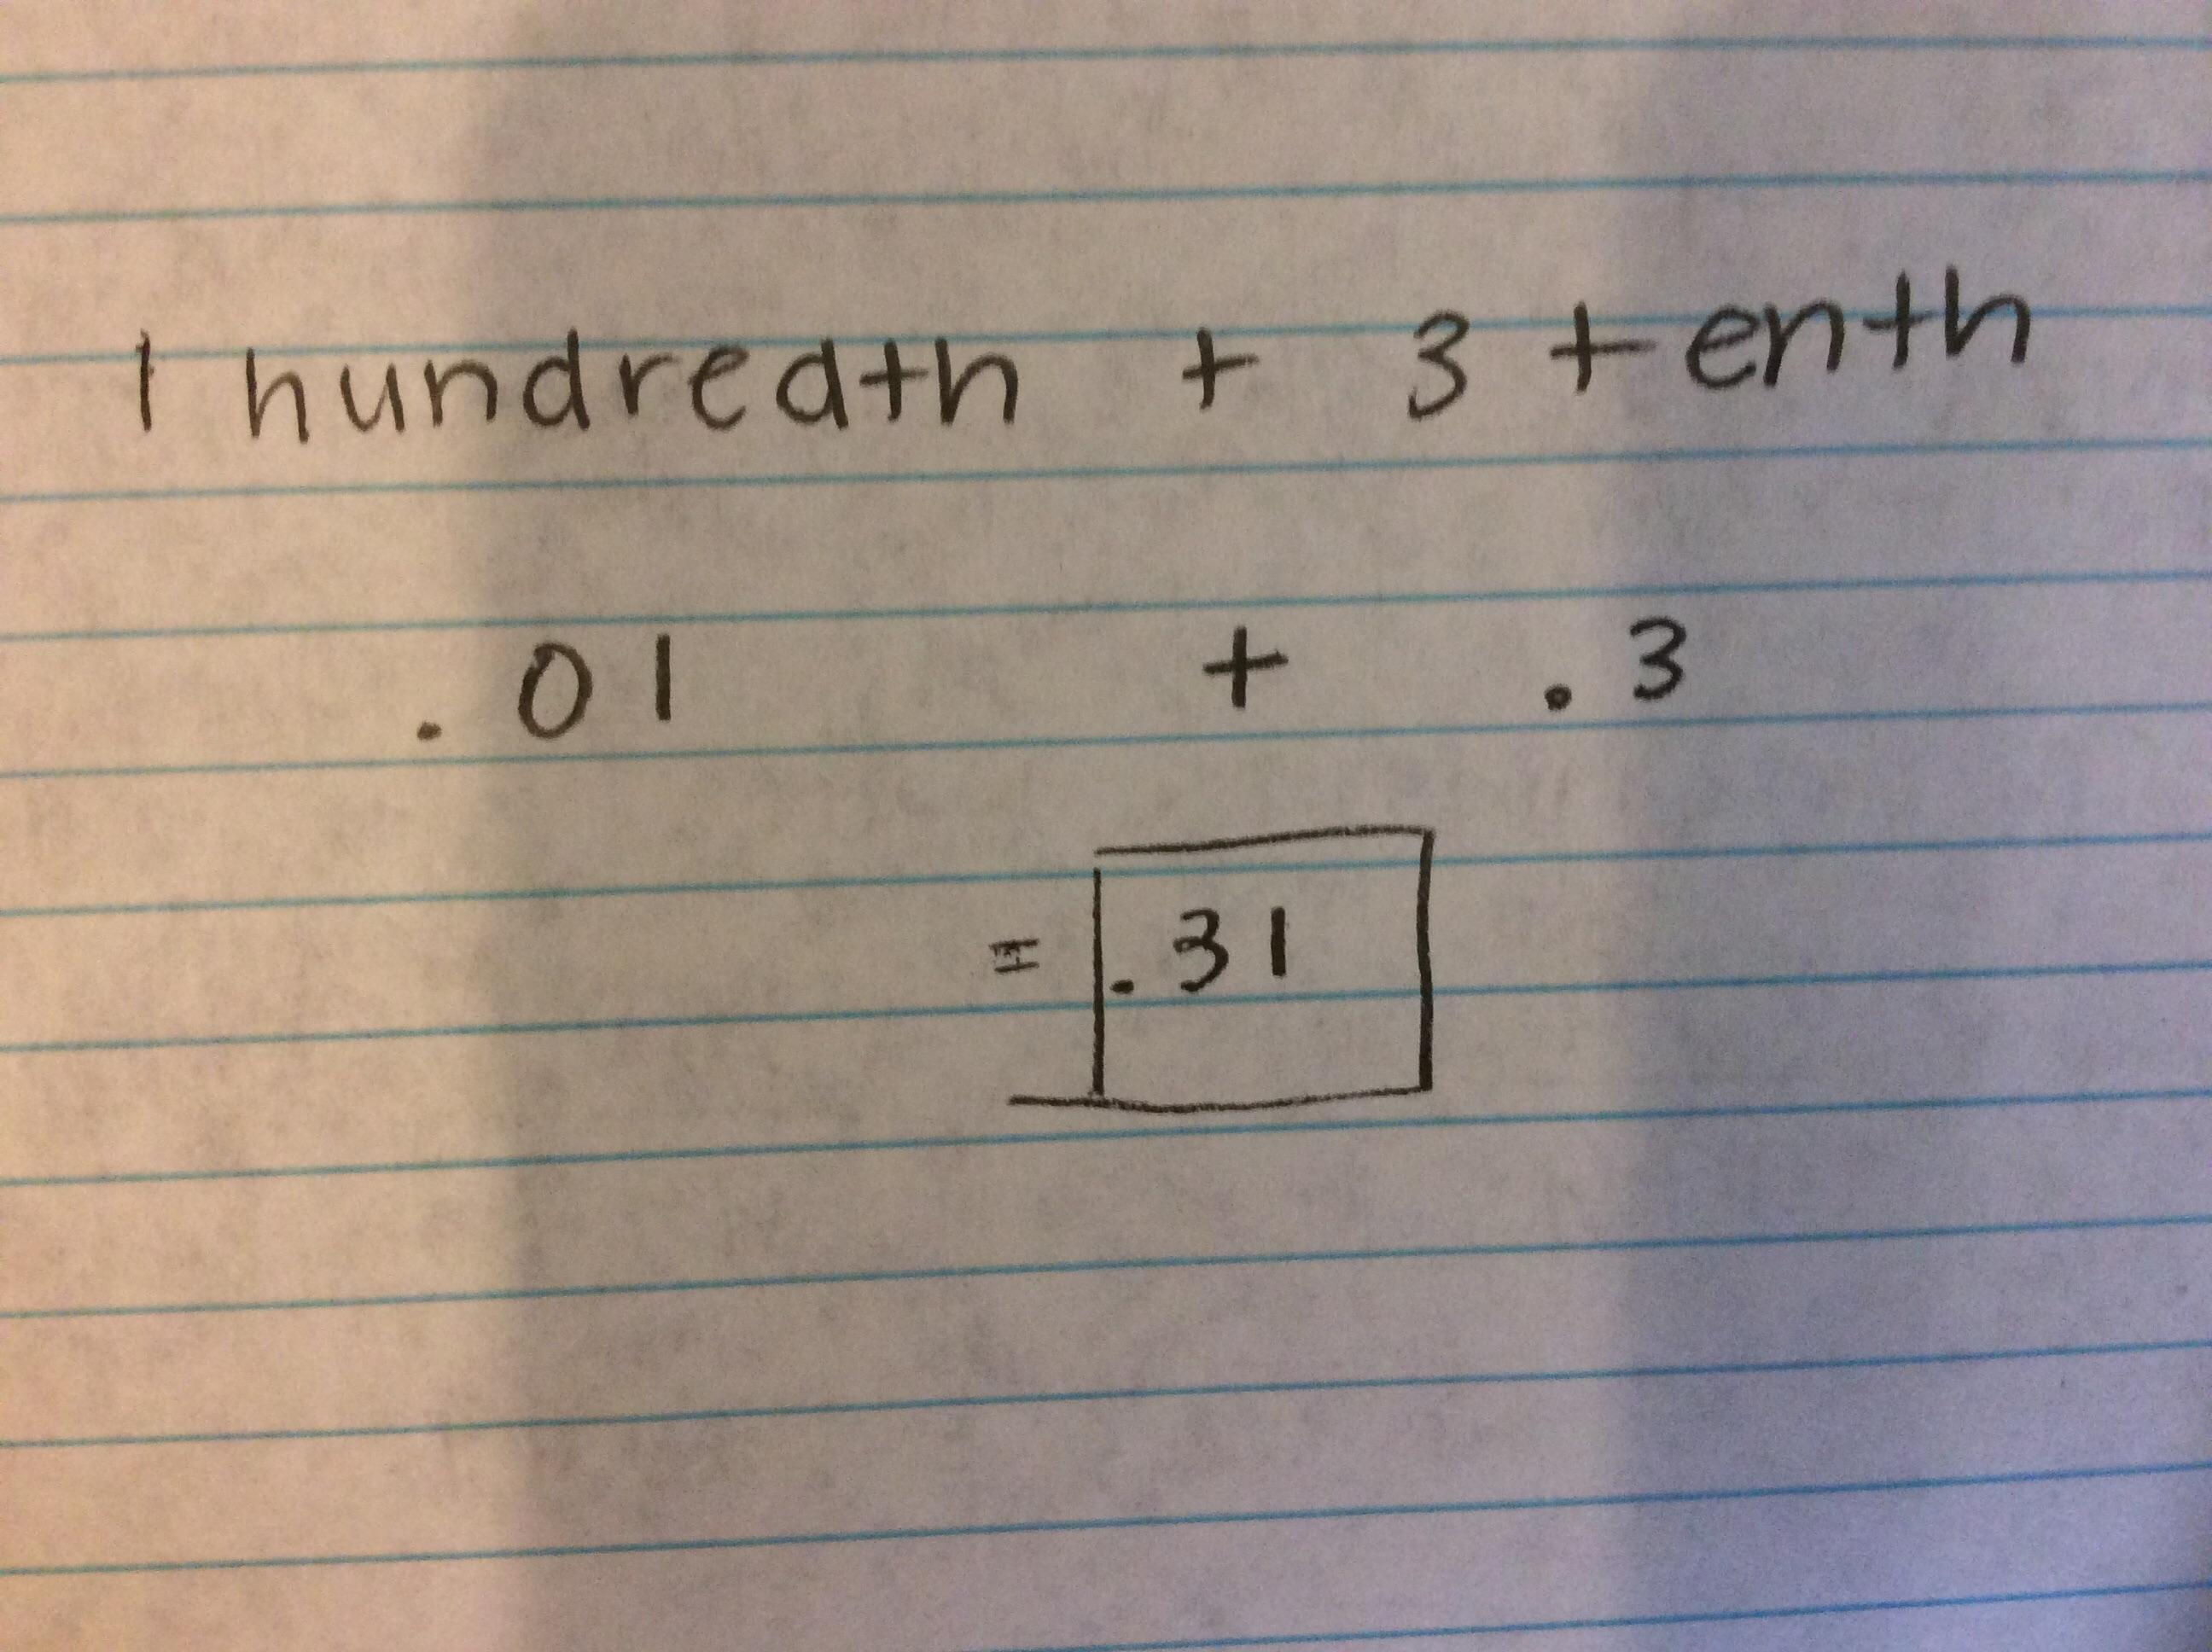 1 hundredth + 3 tenth
.01 + .3
= .31